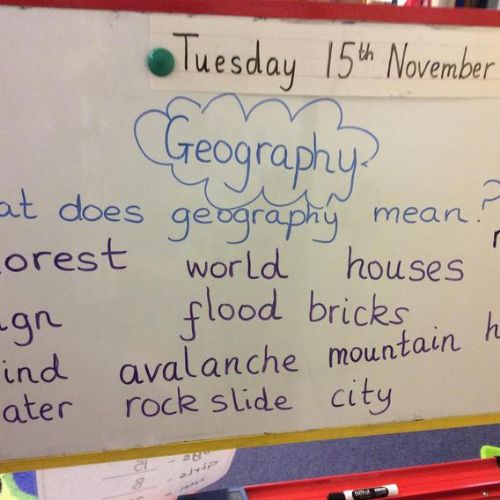 Tuesday 15th November
Geography
at does geography mean?
orest world houses
ign flood bricks
ind avalanche mountain h
ater rock slide city
15
Girls - 8